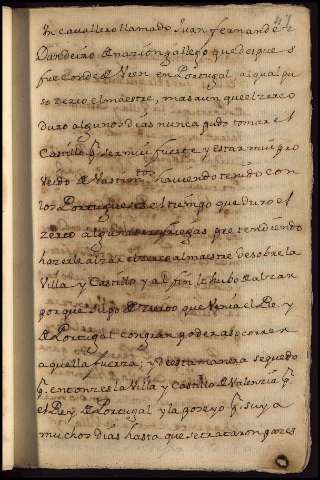 47
Un cavallero llamado Juan fernandez
Dandeiro de nazion gallego que despues
fue Conde de Uren en Portugal, al qual pu
so zerco el maestre, mas aun que el zerco
duro algunos dias nunca pudo tomar el
Castillo pr ser mui fuerte y estar mui pro
veido de Bastimtos haviendo tenido con
los Portugueses el tiempo que duro el
zerco algunas refriegas pretendiendo
hazerle alzar el zerco al maestre de sobre la
Villa y Castillo y al fin le hubo de alzar
porque supo de zierto que Venia el Rey
de Portugal con gran poder a socorrer
aquella fuerza, y desta manera se quedo
pr entonzes la Villa y Castillo de Valenzia pr
el Rey de Portugal y la poseyo pr suya
muchos dias hasta que se trataron pazes